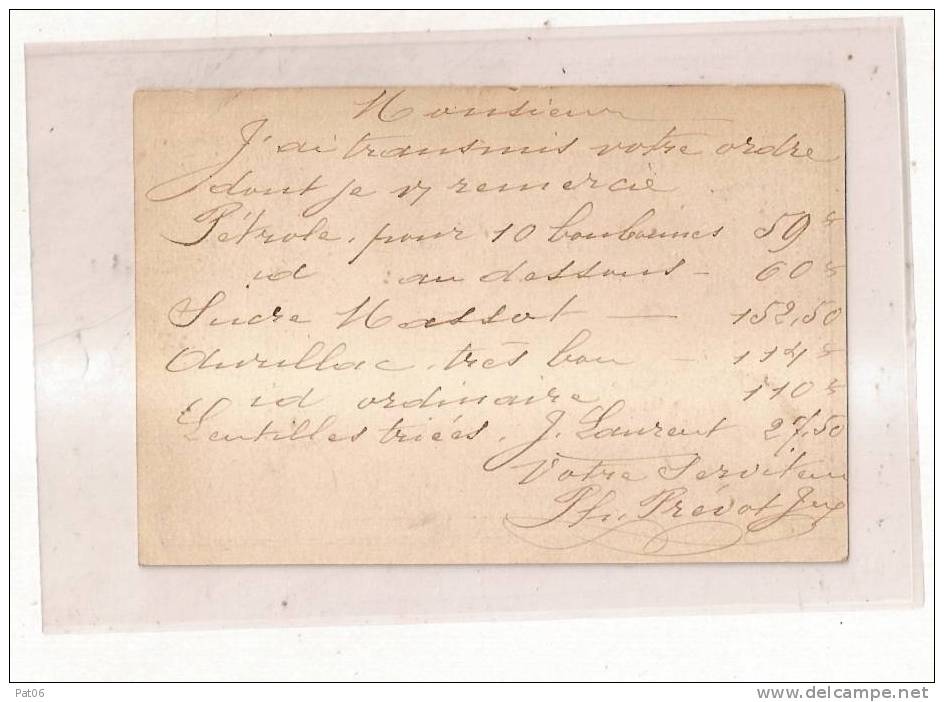 Monsieur
J'ai transmis votre ordre
dont je v/ remercie
Pétrole pour 10 bonbonnes 59
id au dessous - 60
Sucre Massot — 152,50
Aurillac très bon - 114
id ordinaire 110
Lentilles triées. J. Laurent 27,50
Votre Serviteur
Ph. Prévot
Pat06
www.delcampe.net